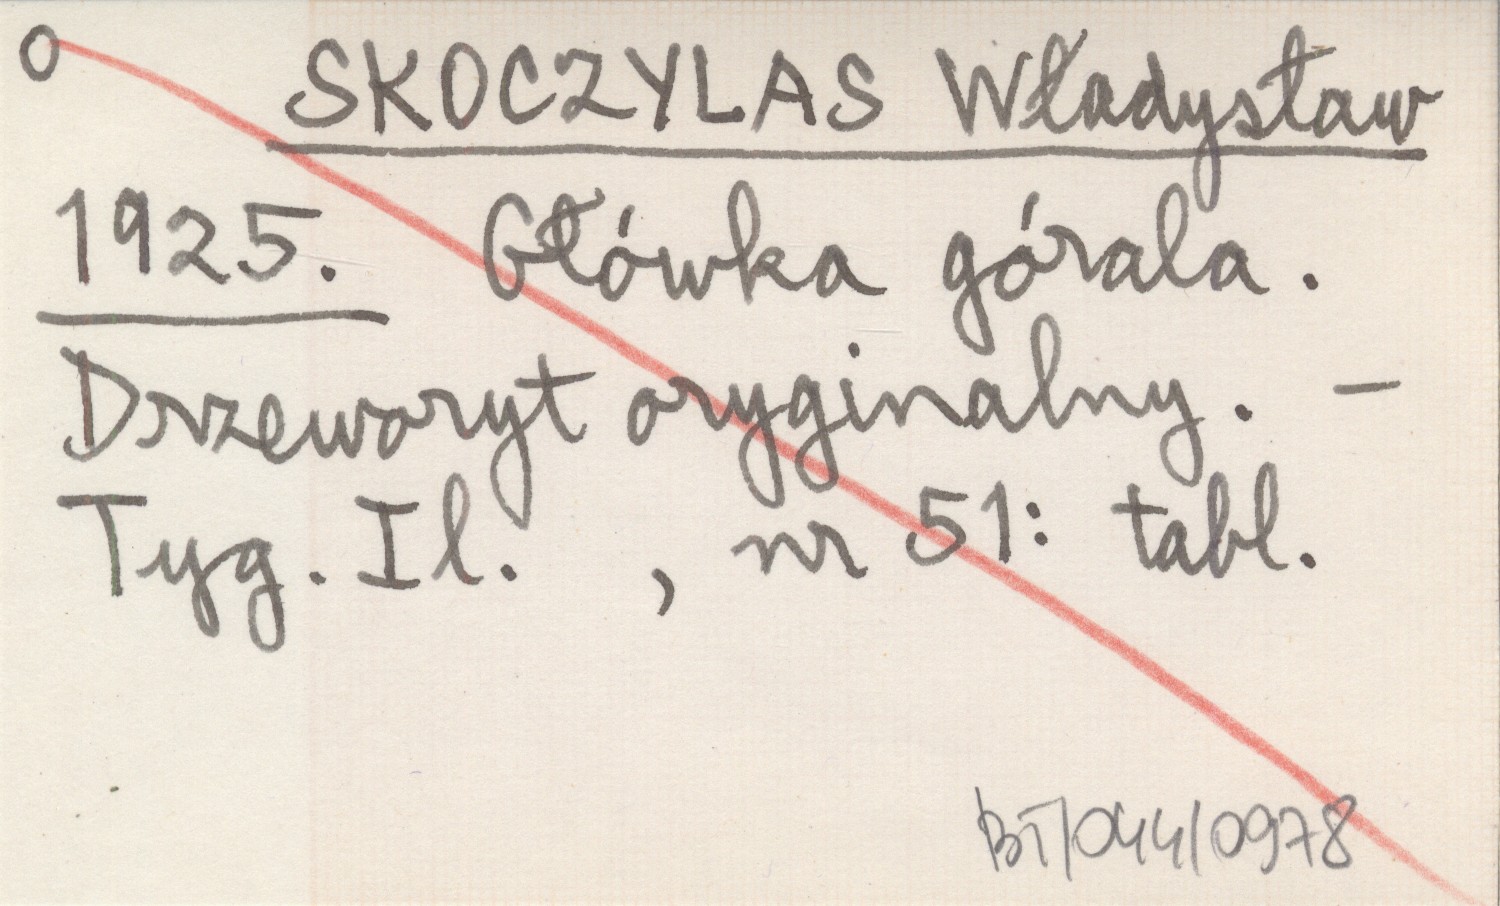 O SKOCZYLAS Władysław
1925. Główka górala.
Drzeworyt oryginalny. –
Tyg. Il. , nr 51: tabl.
BT/044/0978